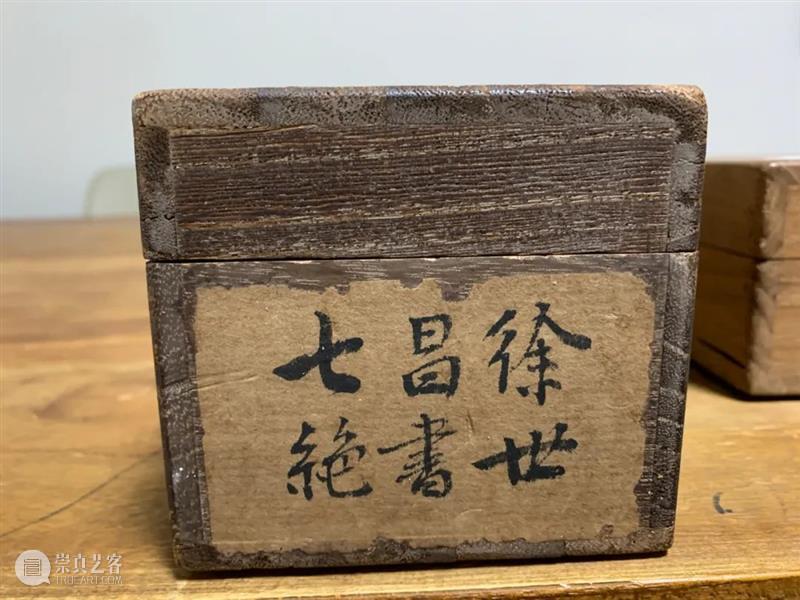 徐世
昌書
七絶
崇真艺客
WWW.TRUEART.COM